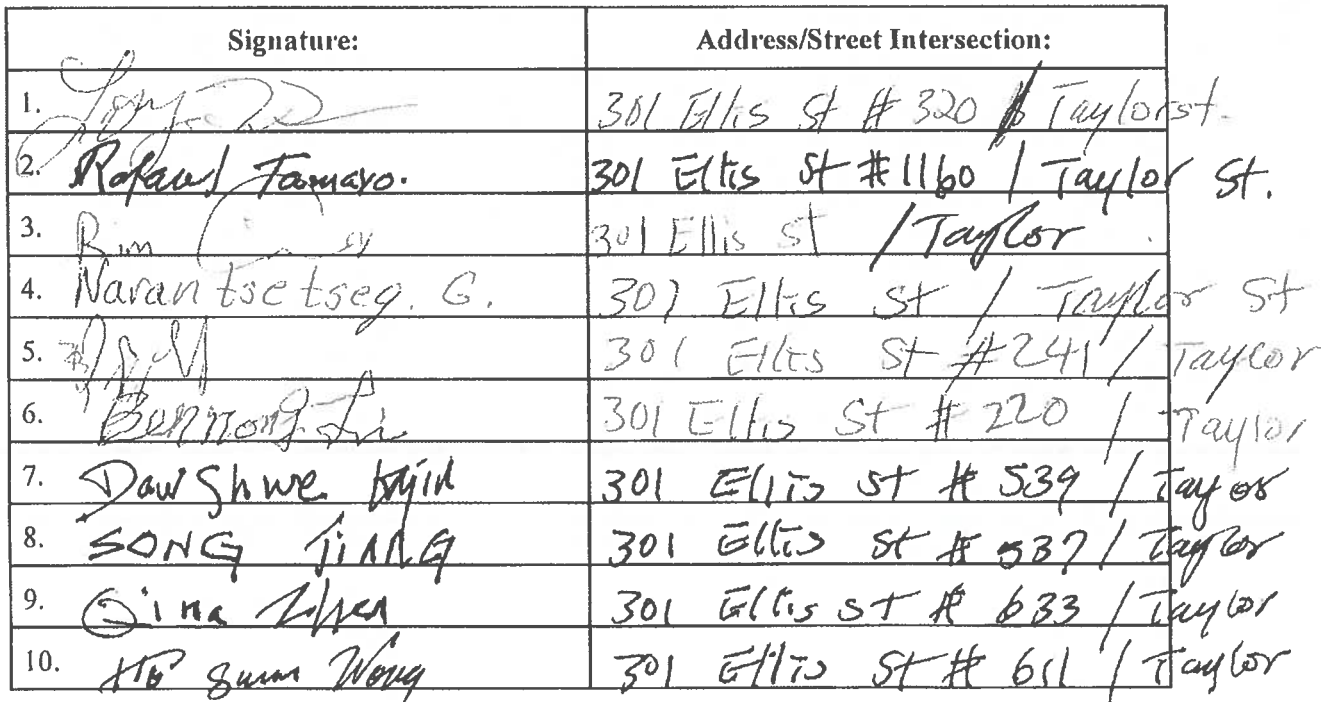 Signature: Address/Street Intersection:
1. 301 Ellis St # 320 / Taylor st.
2. Rafael Tamayo. 301 Ellis St # 1160 / Taylor St.
3. 301 Ellis St / Taylor
4. Narantsetseg. G. 301 Ellis St / Taylor St
5. 301 Ellis St # 241 / Taylor
6. 301 Ellis St # 220 / Taylor
7. Daw Shwe 301 Ellis St # 539 / Taylor
8. SONG JIANG 301 Ellis St # 537 / Taylor
9. 301 Ellis st # 633 / Taylor
10. Wong 301 Ellis St # 611 / Taylor